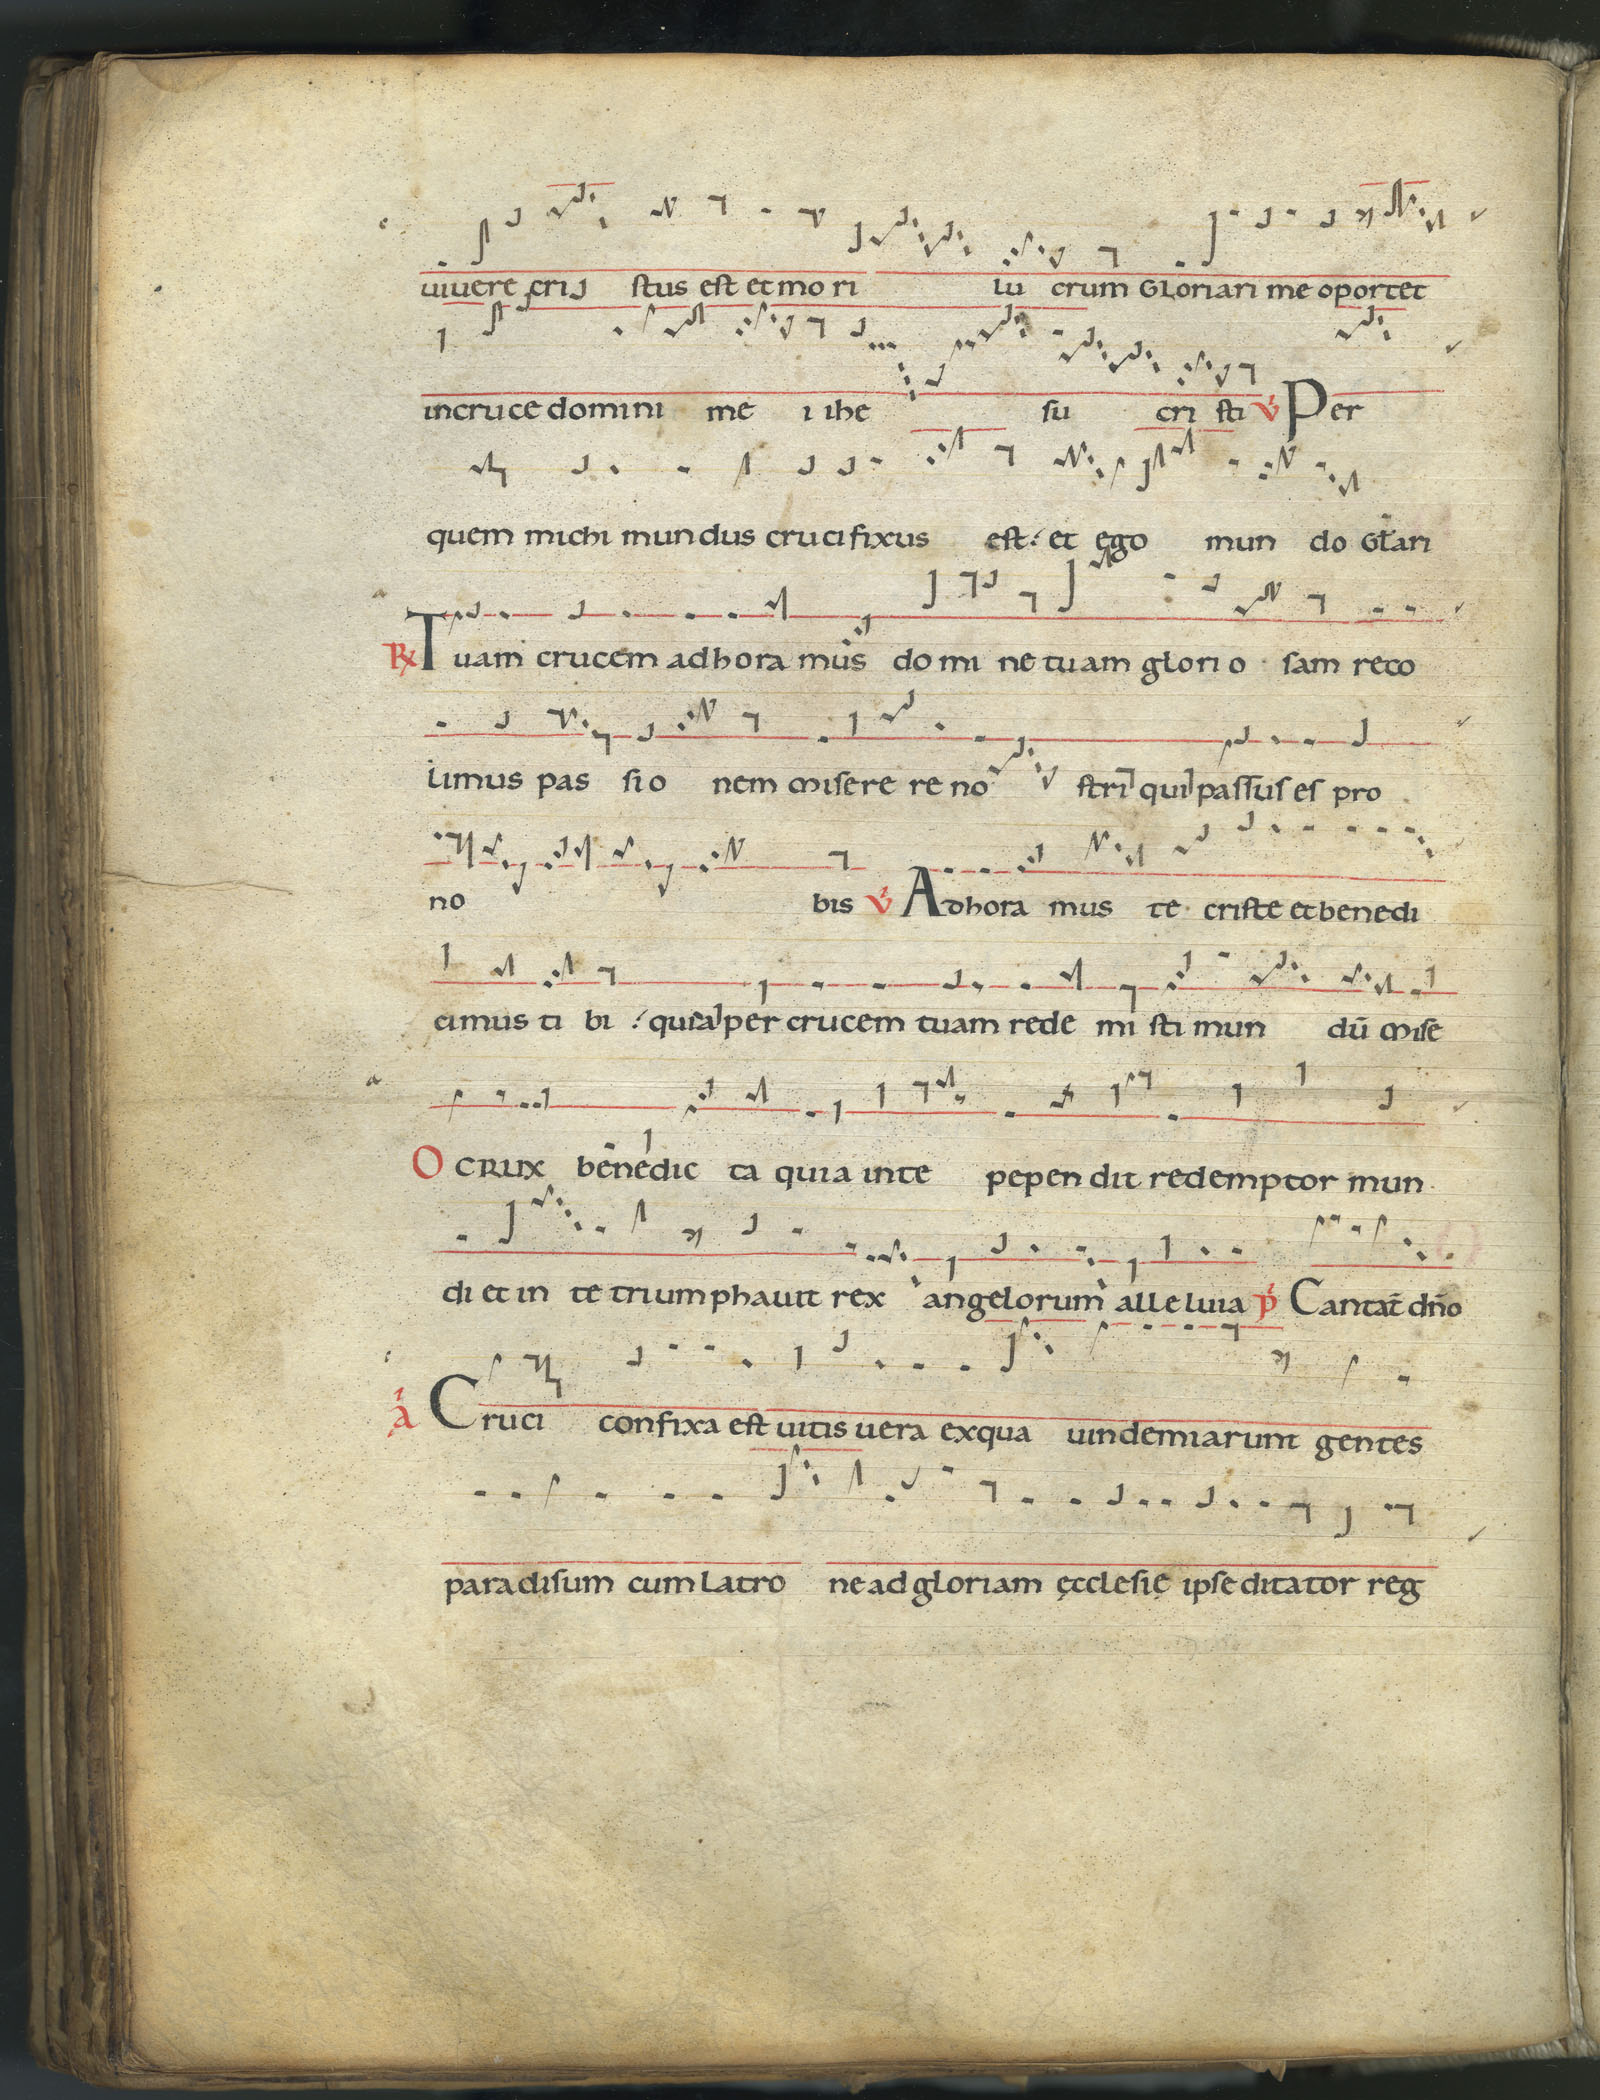 uiuere cri stus est et mo ri lu crum Gloriari me oportet
in cruce domini me i ihe su cri sti V̇ Per
quem michi mun dus cruci fixus est et ego mun do Gl̄ari
R̷ Tuam crucem adhora mus do mi ne tuam glori o sam reco
limus pas si o nem mise re re no stri qui passus es pro
no bis V̇ Adhora mus te criste et benedi
cimus ti bi quia per crucem tuam rede mi sti mun dū mise
O crux benedic ta quia in te pepen dit redemptor mun
di et in te triumphauit rex angelorum alleluia p̄ Cantat̄ dn̄o
a Cruci confixa est uitis uera ex qua uindemiarunt gentes
paradisum cum latro ne ad gloriam ęcclesię ipse ditator reg